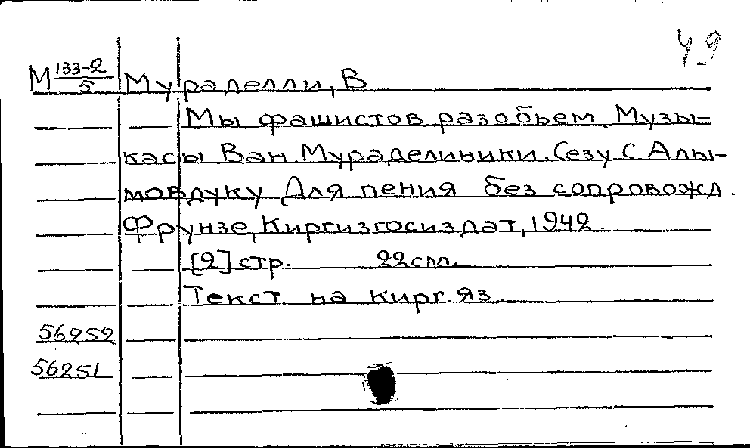 49
М 133-2/5 Мураделли, В
Мы фашистов разобьем. Музы-
касы Ван. Мураделиники. Сезу С. Алы-
мовдуку Для пения без сопровожд.
Фрунзе, Киргизгосиздат, 1942
[2] стр. 22см.
Текст на кирг. яз
56252
56251